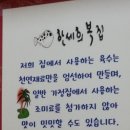 한세의 복집
저희 집에서 사용하는 육수는
천연재료만을 엄선하여 만들며,
일반 가정집에서 사용하는
조미료를 첨가하지 않아
맛이 밋밋할 수도 있습니다.